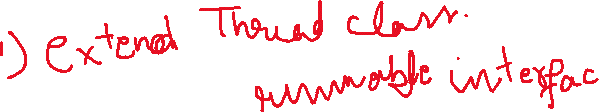 1) extend Thread class.
runnable interfac